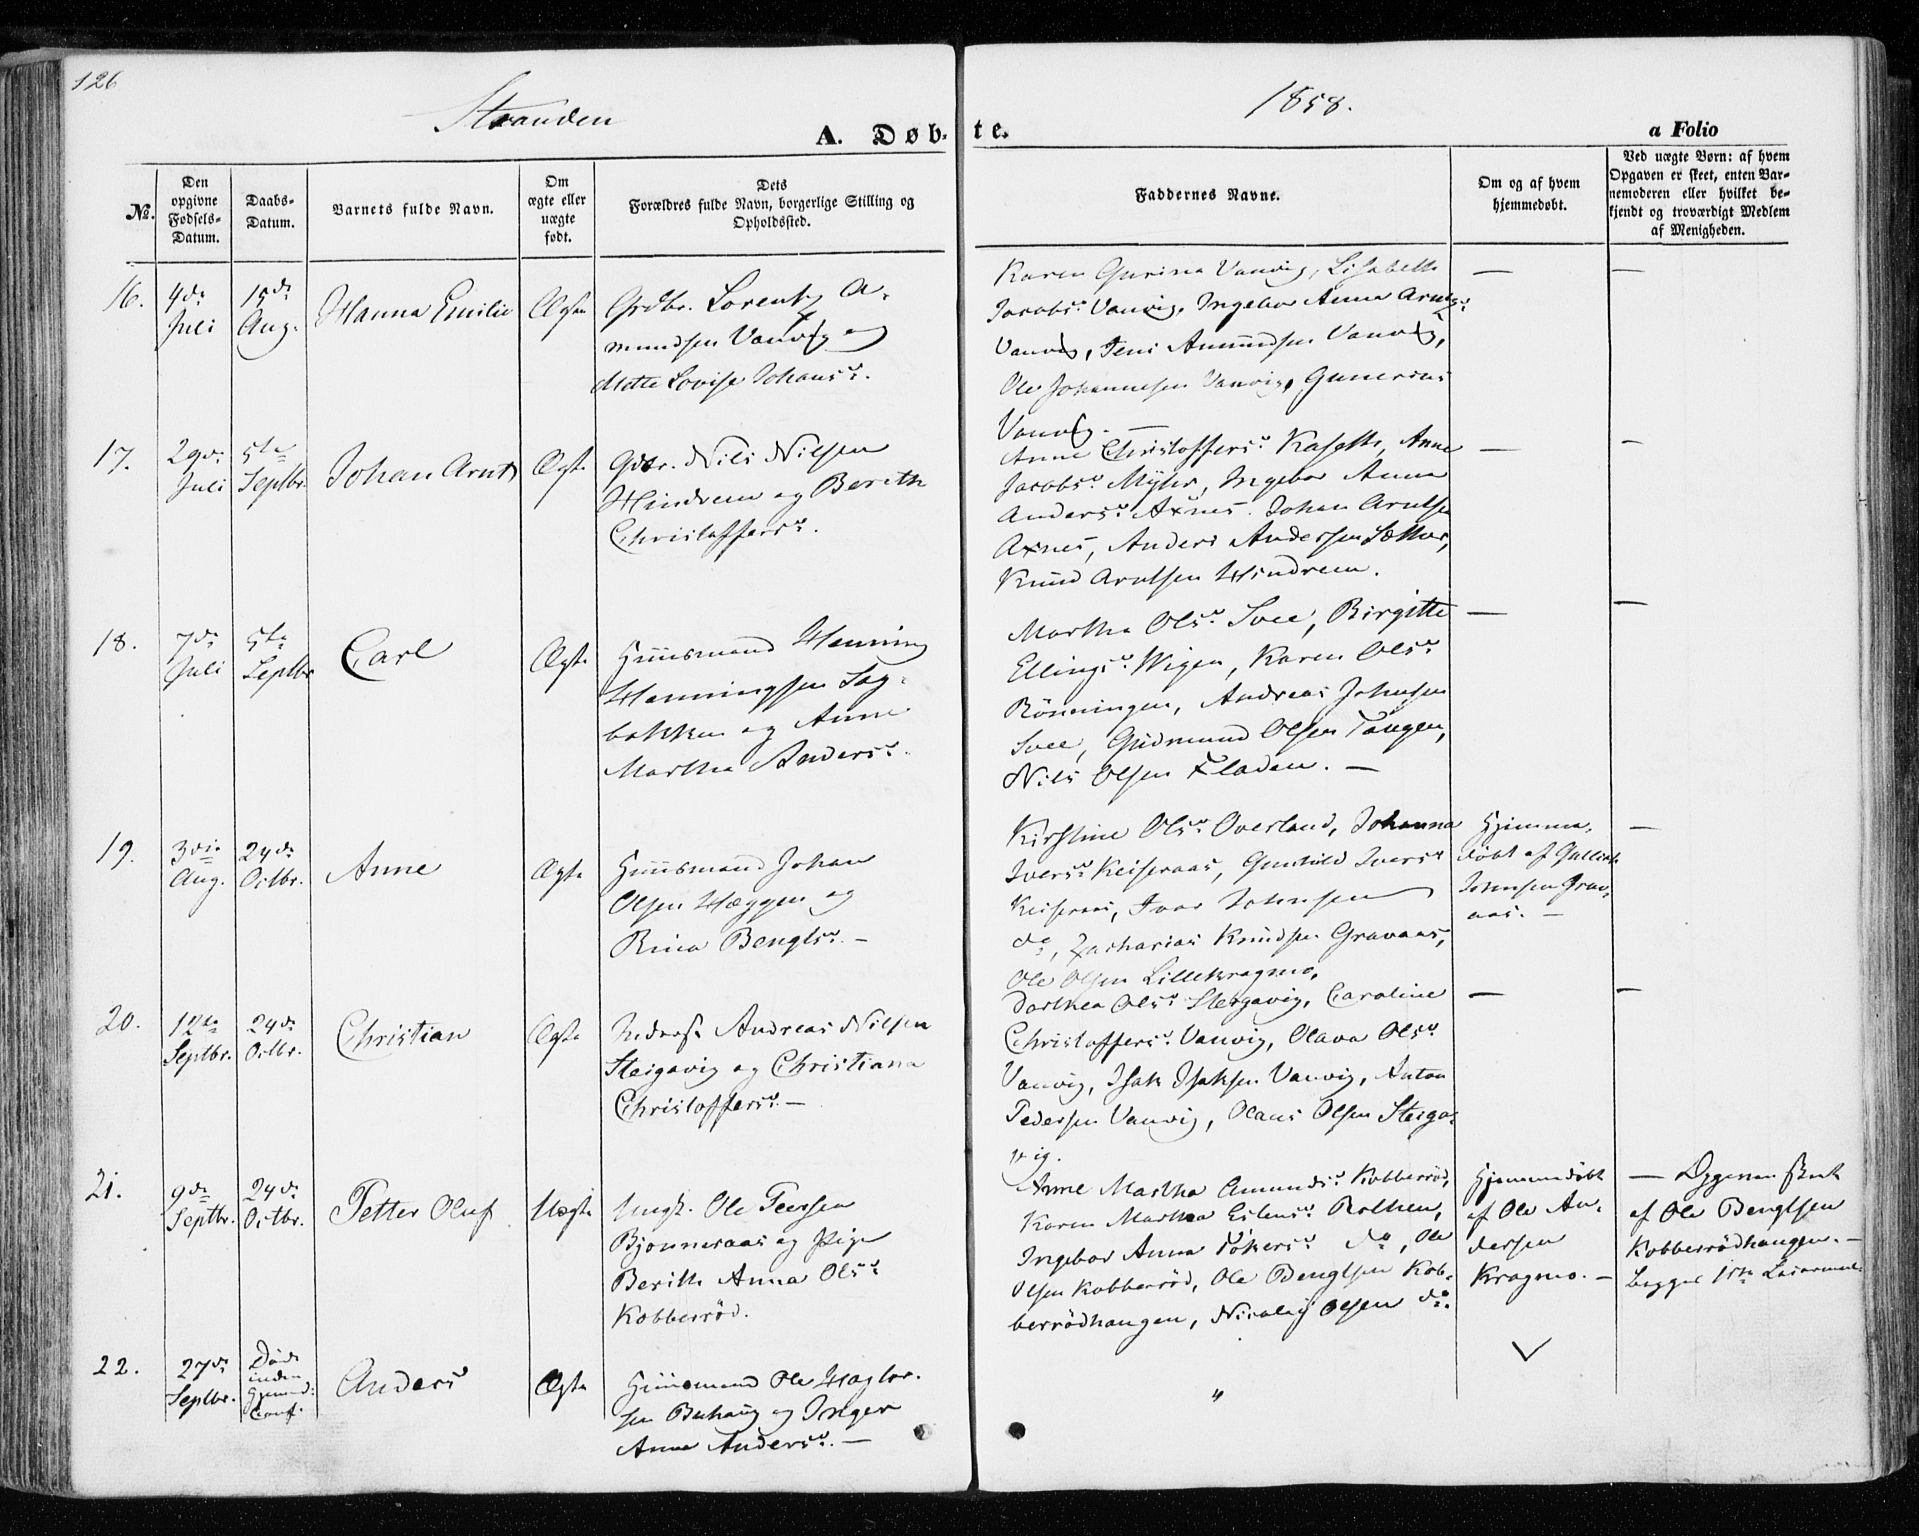 126
Stranden
1858.
A. Døb-
te.
a Folio
No.
Den opgivne Fødsels-Datum.
Daabs-Datum.
Barnets fulde Navn.
Om ægte eller uægte født.
Dets Forældres fulde Navn, borgerlige Stilling og Opholdssted.
Faddernes Navne.
Om og af hvem hjemmedøbt.
Ved uægte Børn: af hvem Opgaven er skeet, enten Barnemoderen eller hvilket bekjendt og troværdigt Medlem af Menigheden.
16.
4de Juli
15de Aug.
Hanna Emilie
Ægte
Grdbr. Lorents A-
mundsen Vanvig og
Mette Lovise Johansd.
Karen Gurina Vanvig, Lisabeth
Jacobsd. Vanvig, Ingebor Anna Arntzd.
Vanvig, Jens Amundsen Vanvig,
Ole Johannesen Vanvig, Gunerius
Vanvig. —
—
—
17.
29de Juli
5te Septbr.
Johan Arnt
Ægte
Gdbr. Nils Nilsen
Hindrem og Berith
Christoffersd.
Anne Christoffersd. Kaseth, Anne
Jacobsd. Myhr, Ingebor Anna
Andersd. Axnes. Johan Arntsen
Axnes, Anders Andersen Sæther,
Knud Arntsen Hindrem.
—
—
18.
7de Juli
5te Septbr
Carl
Ægte
Huusmand Henning
Henningsen Sag-
bakken og Anne
Martha Andersd.
Martha Olsd. Svee, Birgitte
Ellingsd. Wigen, Karen Olsd.
Rönningen, Andreas Johnsen
Svee, Gudmund Olsen Tangen,
Nils Olsen Fladen. —
—
—
19.
3die Aug.
24de Octbr.
Anne
Ægte
Huusmand Johan
Olsen Hæggen og
Rina Bengtsd. —
Kirstine Olsd. Overland, Johanna
Iversd. Keiseraas, Gunhild Iversd.
Keiseraas, Ivar Johnsen
do, Zacharias Knudsen Gravaas,
Ole Olsen Lillekragmo.
Hjemme-
döbt af
Johnsen Grav-
aas. —
—
20.
12te Septbr.
24de Octbr.
Christian
Ægte
Andreas Nilsen
Steigavig og Christiana
Christoffersd. —
Dorthea Olsd. Stergavig, Caroline
Christoffersd. Vanvig, Olava Olsd.
Vanvig, Isak Isaksen Vanvig, Anton
Pedersen Vanvig, Olaus Olsen Steiga-
vig.
—
—
21.
9de Septbr.
24de Octbr.
Petter Oluf
Uægte
Ungk. Ole Peersen
Bjönneraas og Pige
Berith Anna Olsd.
Kobberröd.
Anne Martha Amundsd. Kobberröd,
Karen Martha Estensd. Rothen,
Ingebor Anna do, Ole
Olsen Kobberröd, Ole Bengtsen Kob-
berrödhaugen, Nicolay Olsen do.
Hjemmedöbt
af Ole An-
dersen
Kragmo. —
— Opgaven skeet
af Ole Bengtsen
Kobberrödhaugen. —
Begges 1ste Leiermaal.
22.
27de Septbr.
Död inden Hjemmed: Conf.
Anders
Ægte
Huusmand Ole
sen Buhaug og Inger
Anna Andersd. —
"